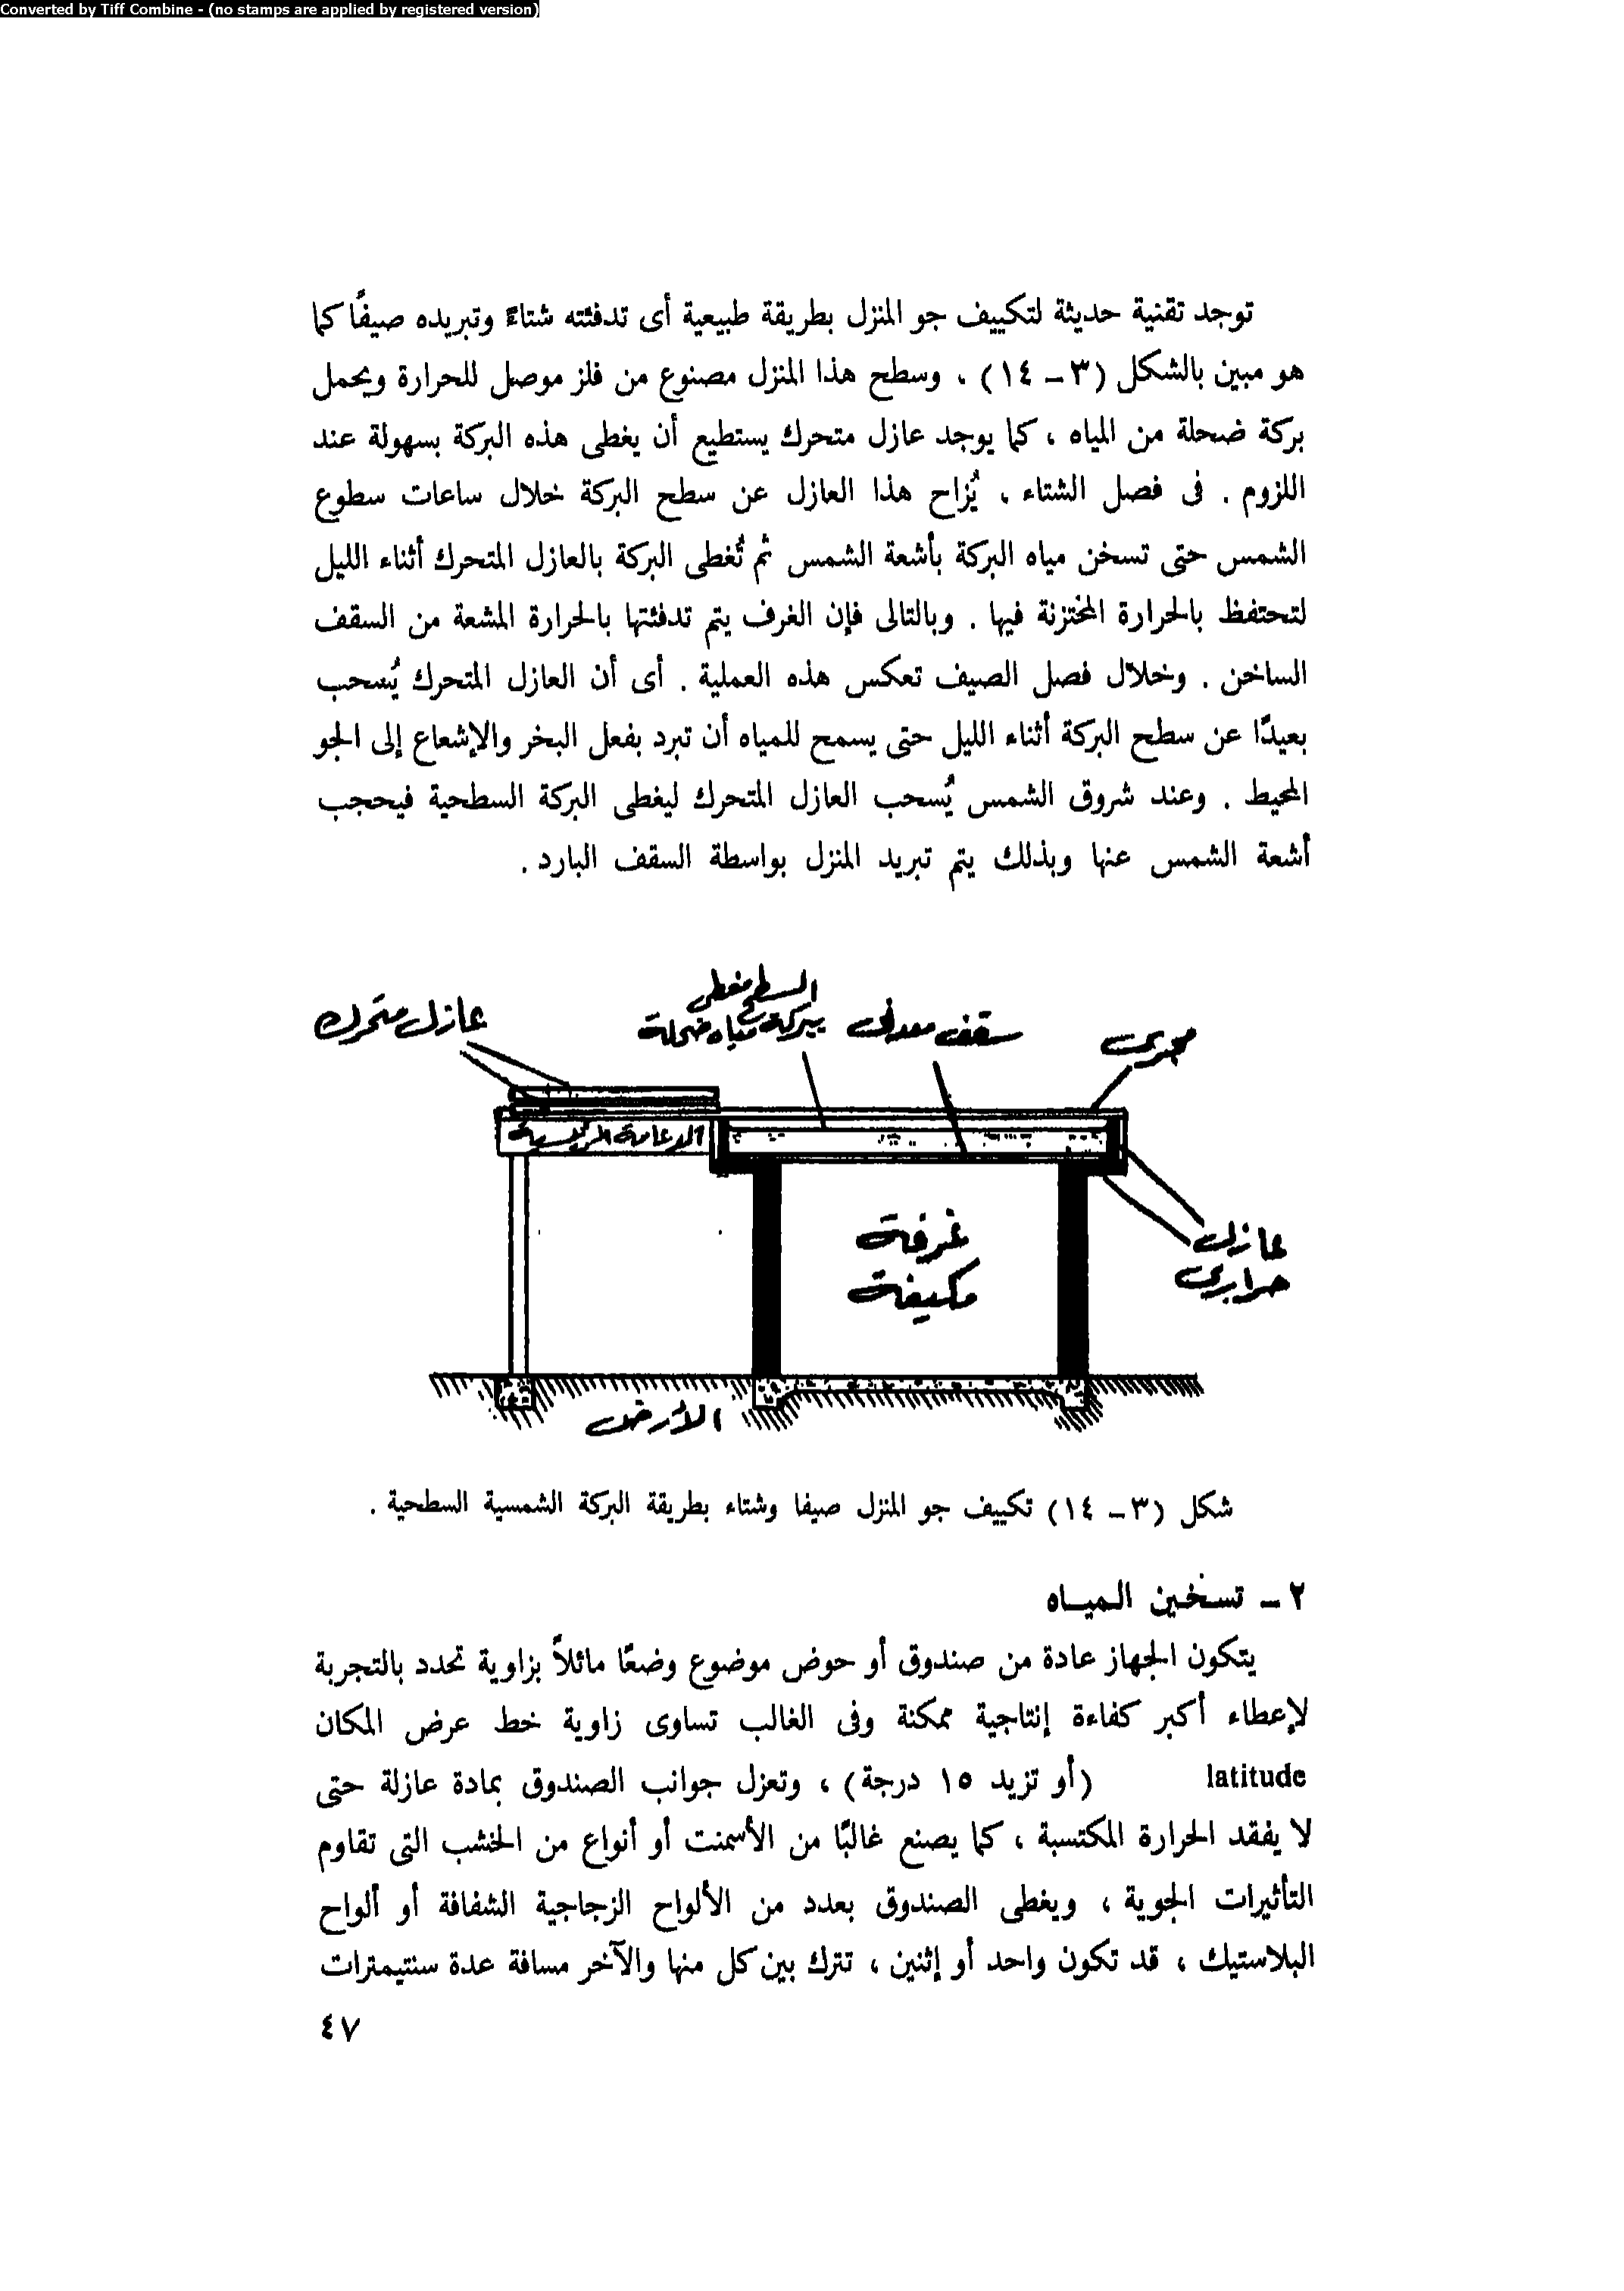 Converted by Tiff Combine - (no stamps are applied by registered version)
توجد تقنية حديثة لتكييف جو المنزل بطريقة طبيعية أى تدفئته شتاءً وتبريده صيفًا كما
هو مبين بالشكل (٣ – ١٤) ، وسطح هذا المنزل مصنوع من فلز موصل للحرارة ويحمل
بركة ضحلة من المياه ، كما يوجد عازل متحرك يستطيع أن يغطى هذه البركة بسهولة عند
اللزوم . فى فصل الشتاء ، يُزاح هذا العازل عن سطح البركة خلال ساعات سطوع
الشمس حتى تسخن مياه البركة بأشعة الشمس ثم تُغطى البركة بالعازل المتحرك أثناء الليل
لتحتفظ بالحرارة المختزنة فيها . وبالتالى فإن الغرف يتم تدفئتها بالحرارة المشعة من السقف
الساخن . وخلال فصل الصيف تعكس هذه العملية . أى أن العازل المتحرك يُسحب
بعيدًا عن سطح البركة أثناء الليل حتى يسمح للمياه أن تبرد بفعل البخر والإشعاع إلى الجو
المحيط . وعند شروق الشمس يُسحب العازل المتحرك ليغطى البركة السطحية فيحجب
أشعة الشمس عنها وبذلك يتم تبريد المنزل بواسطة السقف البارد .
مجرى
سقف معدنى
السطح مغطى
ببركة مياه ضحلة
عازل متحرك
الدعامة الرئيسية
غرفة
مكيفة
عازل
حرارى
الأرض
شكل (٣ – ١٤) تكييف جو المنزل صيفا وشتاء بطريقة البركة الشمسية السطحية .
٢ – تسخين المياه
يتكون الجهاز عادة من صندوق أو حوض موضوع وضعًا مائلاً بزاوية تحدد بالتجربة
لإعطاء أكبر كفاءة إنتاجية ممكنة وفى الغالب تساوى زاوية خط عرض المكان
latitude (أو تزيد ١٥ درجة) ، وتعزل جوانب الصندوق بمادة عازلة حتى
لا يفقد الحرارة المكتسبة ، كما يصنع غالبًا من الأسمنت أو أنواع من الخشب التى تقاوم
التأثيرات الجوية ، ويغطى الصندوق بعدد من الألواح الزجاجية الشفافة أو ألواح
البلاستيك ، قد تكون واحد أو إثنين ، تترك بين كل منها والآخر مسافة عدة سنتيمترات
٤٧